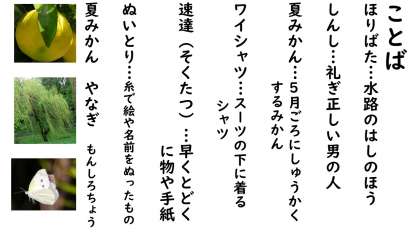 ことば
ほりばた…水路のはしのほう
しんし…礼ぎ正しい男の人
夏みかん…５月ごろにしゅうかく
するみかん
ワイシャツ…スーツの下に着る
シャツ
速達（そくたつ）…早くとどく
に物や手紙
ぬいとり…糸で絵や名前をぬったもの
夏みかん　やなぎ　もんしろちょう